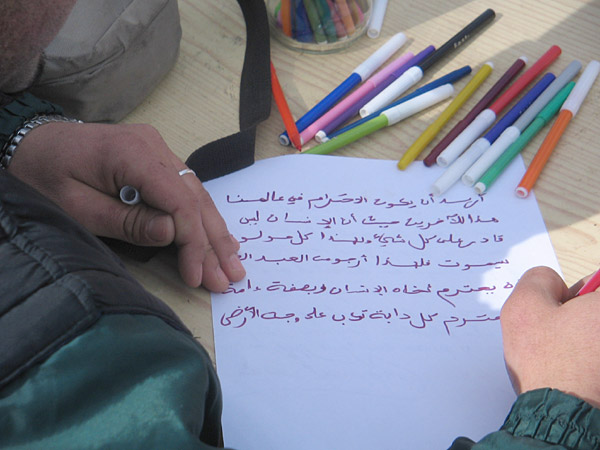 أريد أن يكون الاحترام في عالمنا
هذا حيث أن الإنسان ليس
قادر على كل شيء ولهذا كل مولود
سيموت فلهذا أرجو من العبد
يحترم أخاه الإنسان وبصفة عامة
يحترم كل دابة تدب على وجه الأرض